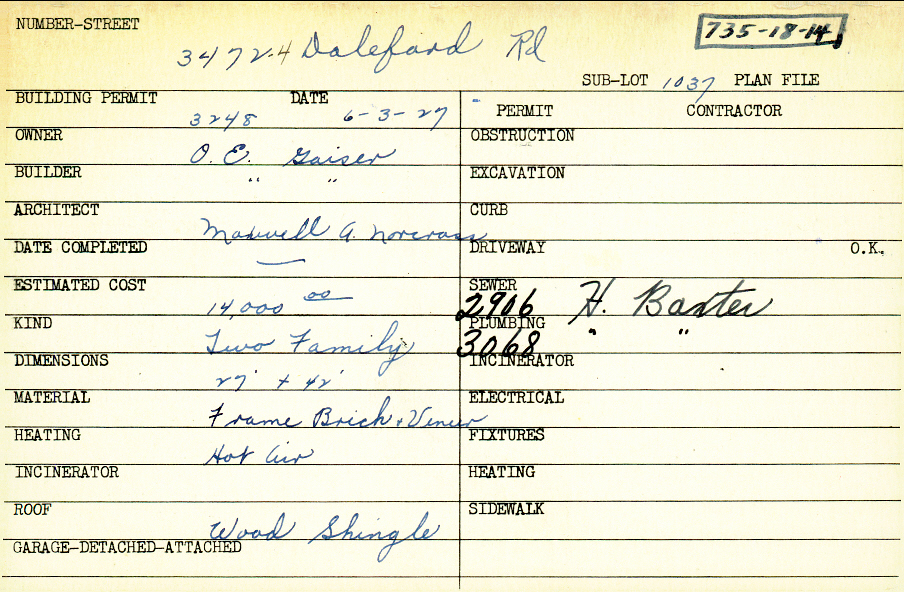 NUMBER-STREET
34724 Daleford Rd
735-18-14
SUB-LOT 1037 PLAN FILE
BUILDING PERMIT DATE
3248 6-3-27
PERMIT CONTRACTOR
OWNER
O. E. Gaiser
OBSTRUCTION
BUILDER
" "
EXCAVATION
ARCHITECT
Maxwell A. Norcross
CURB
DATE COMPLETED
—
DRIVEWAY O.K.
ESTIMATED COST
14,000 00
SEWER
2906 H. Baxter
KIND
Two Family
PLUMBING
3068 " "
DIMENSIONS
27' + 42'
INCINERATOR
MATERIAL
Frame Brick + Veneer
ELECTRICAL
HEATING
Hot Air
FIXTURES
INCINERATOR
HEATING
ROOF
Wood Shingle
SIDEWALK
GARAGE-DETACHED-ATTACHED